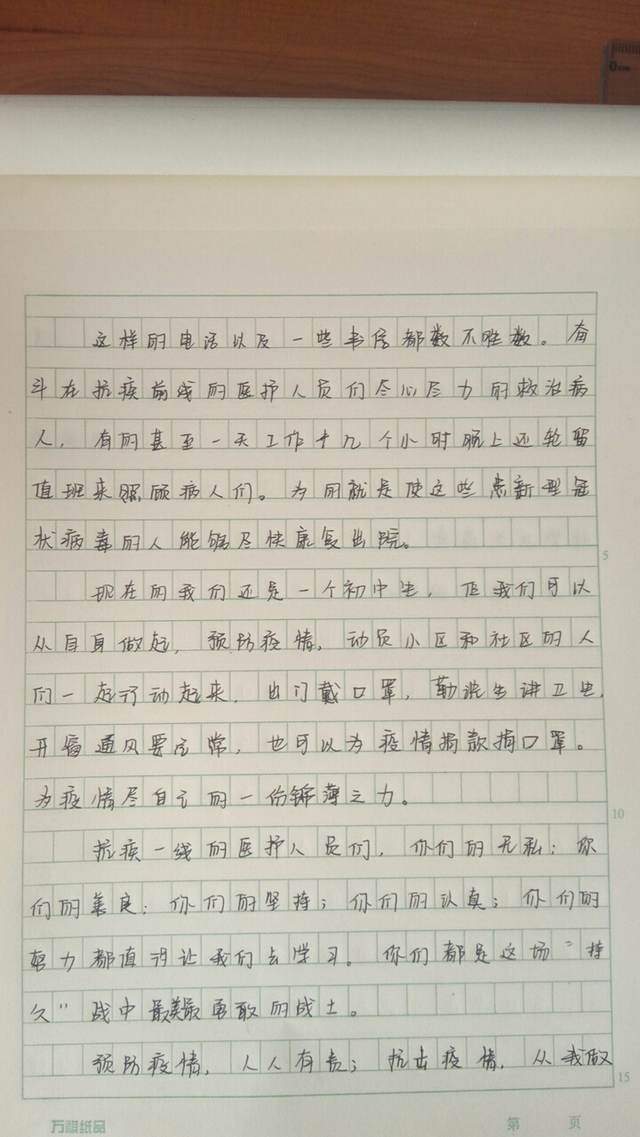 这样的电话以及一些书信都数不胜数。奋
斗在抗疫前线的医护人员们尽心尽力的救治病
人，有的甚至一天工作十几个小时晚上还轮留
值班来照顾病人们。为的就是使这些患新型冠
状病毒的人能够尽快康复出院。
现在的我们还是一个初中生，但我们可以
从自身做起，预防疫情，动员小区和社区的人
们一起行动起来，出门戴口罩，勤洗生讲卫生，
开窗通风要正常，也可以为疫情捐款捐口罩。
为疫情尽自己的一份绵薄之力。
抗疫一线的医护人员们，你们的无私；你
们的善良；你们的坚持；你们的认真；你们的
努力都值得让我们去学习。你们都是这场"持
久"战中最美最勇敢的战士。
预防疫情，人人有责；抗击疫情，从我做
5
10
15
万联纸品
第 页
0cm